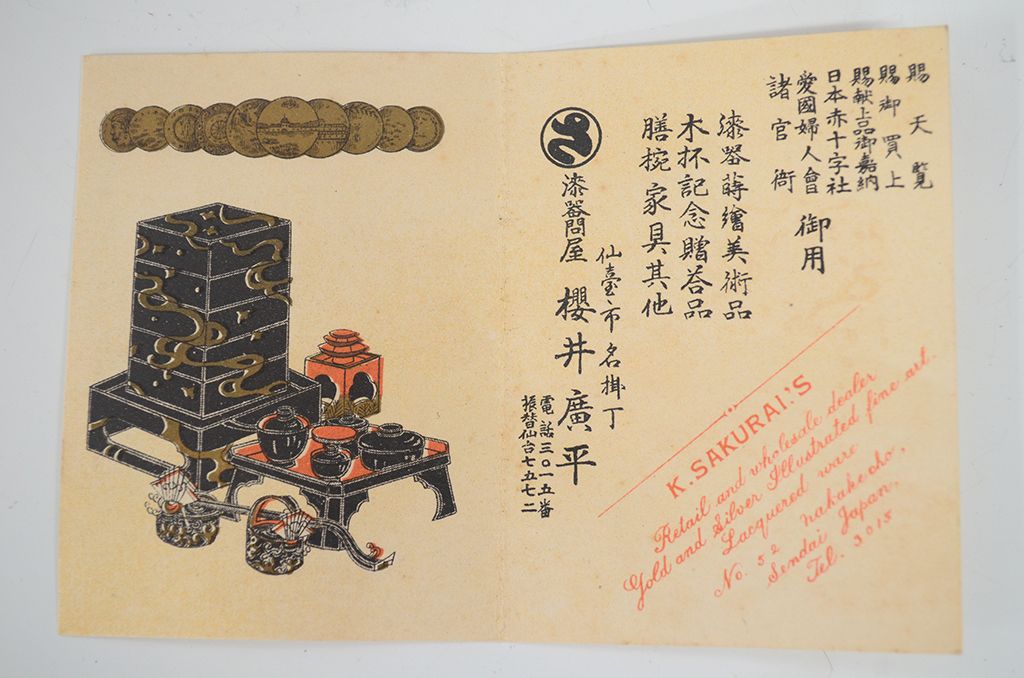 賜天覧
賜御買上
賜献上品御嘉納
日本赤十字社
愛國婦人會
諸官衙
御用
漆器蒔繪美術品
木杯記念贈荅品
膳椀家具其他
仙臺市名掛丁
漆器問屋 櫻井廣平
電話三〇一五番
振替仙台七五七二
K. SAKURAI'S
Retail and wholesale dealer
Gold and Silver Illustrated fine art.
Lacquered ware
No. 52 nakakecho,
Sendai Japan.
Tel. 3015